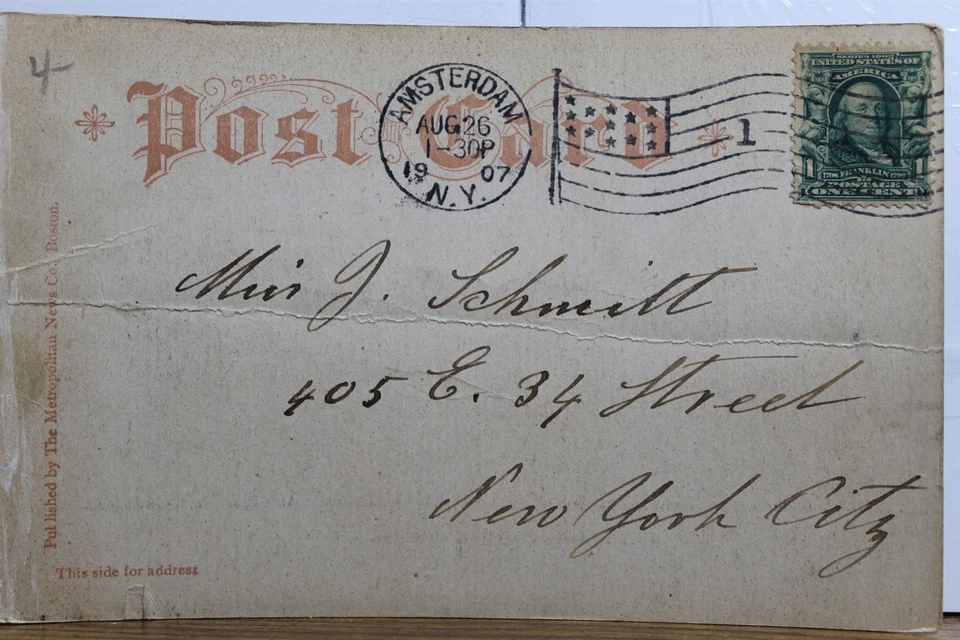 4
Post Card
AMSTERDAM
AUG 26
1-30P
1907
N.Y.
1
SERIES 1902
UNITED STATES OF
AMERICA
1 1706 FRANKLIN 1790 1
POSTAGE
ONE CENT
Miss J. Schmitt
405 E. 34 Street
New York City
Published by The Metropolitan News Co. Boston.
This side for address